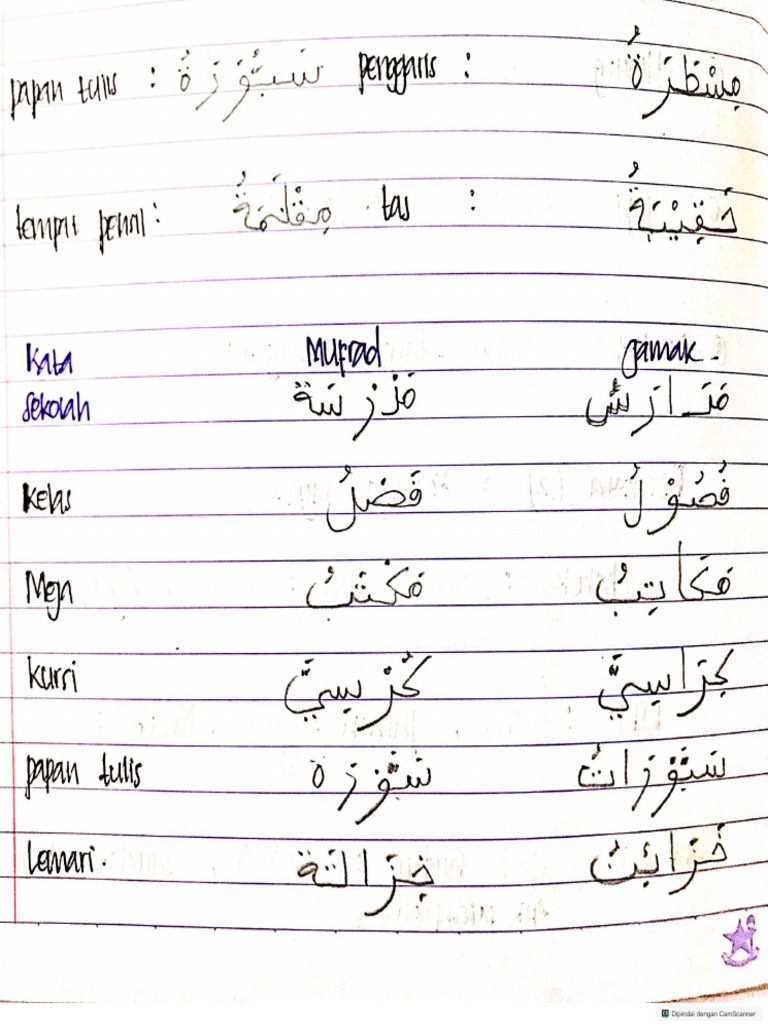 papan tulis : سَبُّوْرَةُ penggaris : مِسْطَرَةُ
tempat pensil : مِقْلَمَةُ tas : حَقِيْبَةُ
Kata Mufrad Jamak.
Sekolah مَدْرَسَة مَدَارَسُ
Kelas فَصْلُ فُصُوْلُ
Meja مَكْتَبُ مَكَاتِبُ
kursi كُرْسِيَّ كِرَاسِيَّ
papan tulis سَبُّوْرَة سَبُّوْرَاتُ
Lemari. خِزَانَة خَزَائِنُ
Dipindai dengan CamScanner